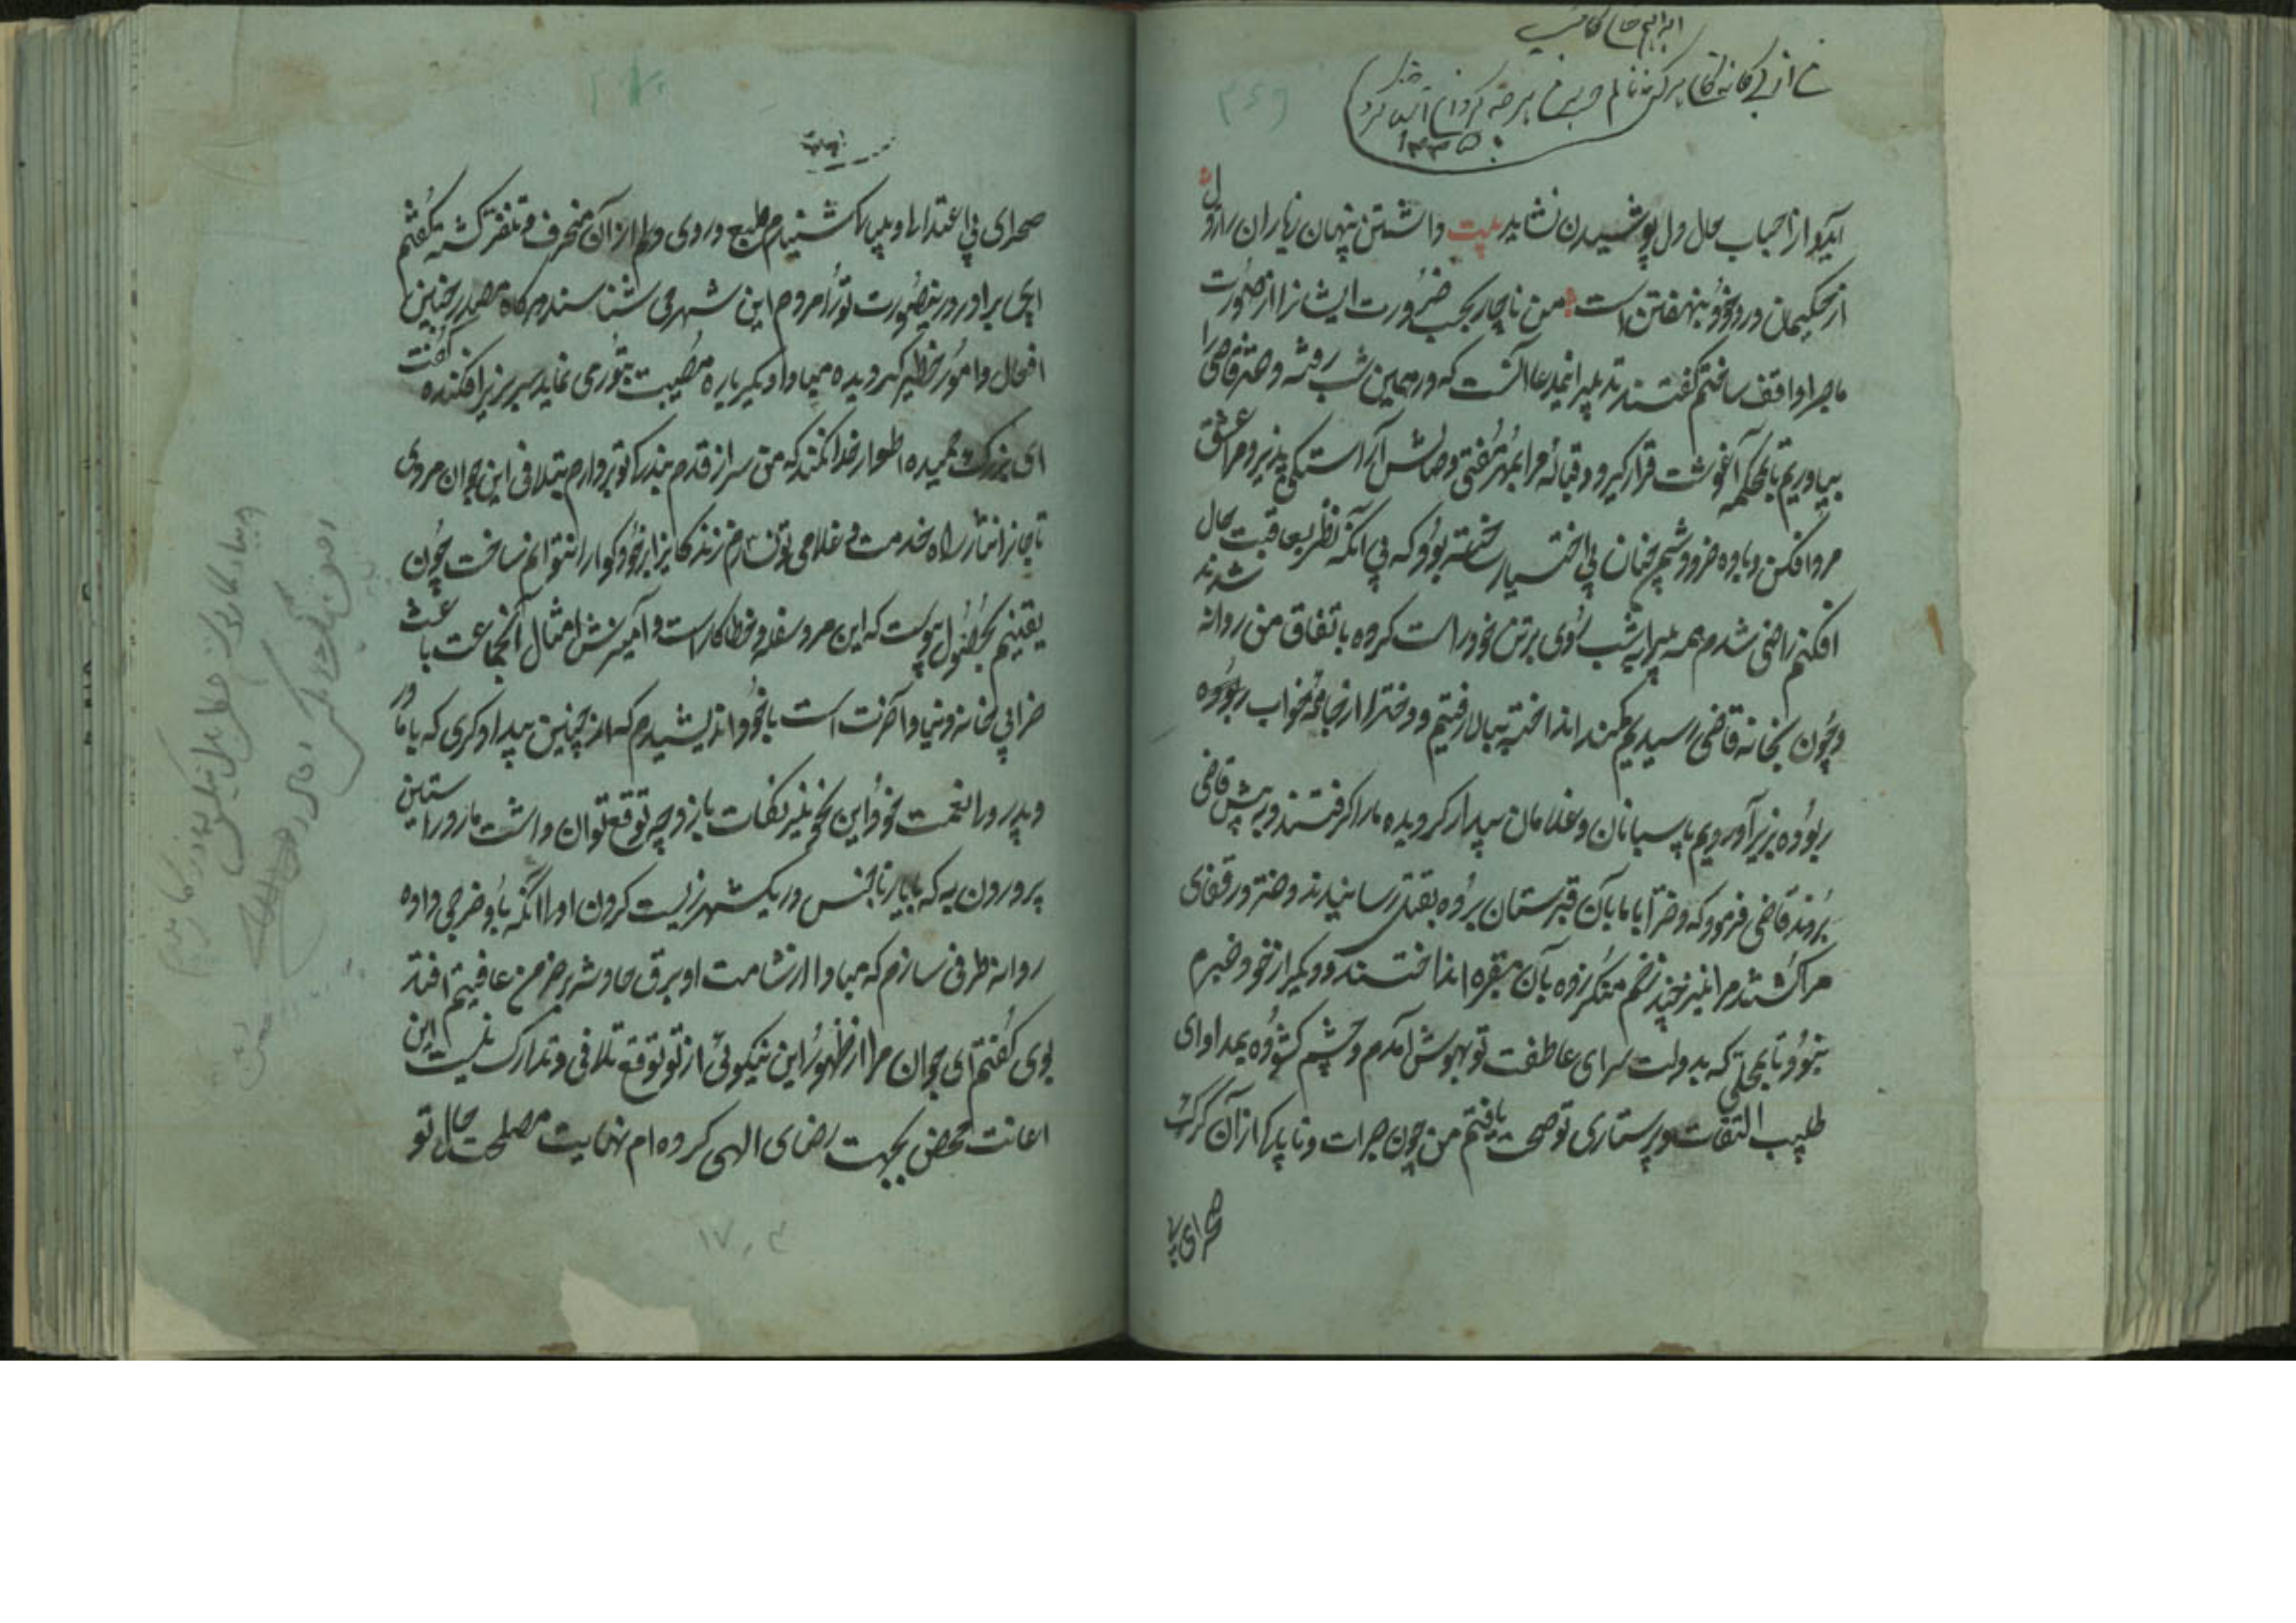 ابراهیم خان کاتب
من از بیگانگان هرگز ننالم که با من هر چه کرد آن آشنا کرد
۱۳۳۵
از احباب حال دل پوشیدن نشاید بیت داشتن پنهان زیاران راز دل
از حکیمان درد خود بنهفتن است من ناچار بحسب ضرورت ایشانرا از صورت
ماجرا واقف ساختم گفتند تدبیر اینمدعا آنست که در همین شب رفته دختر قاضی را
بیاوریم تا بحکمه آغوشت قرار گیرد و قباله مرا بمهر مفتی وصالش آراستگی پذیرد مرا عشق
مردافکن و باده مرد و شم چنان بی اختیار ساخته بود که بی آنکه نظر بعاقبت حال
افکنم راضی شدم همه پیرایه شب روی برتن خود راست کرده باتفاق من روانه شدند
و چون بخانه قاضی رسیدیم کمند انداخته ببالا رفتیم و دختر را از جامه خواب ربوده
ربوده بزیر آوردیم پاسبانان و غلامان بیدار گردیده ما را گرفتند و پیش قاضی
بردند قاضی فرمود که دختر را با ما بآن قبرستان برده بقتل رسانیدند و دختر در قفای
مرا کشتند مرا نیز چند زخم منکر زده بآن مقبره انداختند و دیگر از خود خبرم
نبود تا بمحلی که بدولت سرای عاطفت تو بهوش آمدم و چشم گشوده بمداوای
طبیب التفات و پرستاری تو صحت یافتم من چون جرات و ناپاکی از آن گرک
صحرای بی
صحرای بی اعتدالی و بیباکی شنیدم طبع و روی دلم از آن منحرف و متنفر گشته گفتم
ای برادر درینصورت ترا مردم این شهر می شناسند هرگاه مصدر چنین
افعال و امور خطیر گردیده مبادا دیگر باره مصیبت بتو رو نماید سر بزیر افکنده گفت
ای بزرگ حمیده اطوار خدا نکند که من سر از قدم بندگی تو بردارم بتلافی این جوان مردی
تا جان را نثار راه خدمت و غلامی تو نسازم زندگانی را بر خود گوارا نتوانم ساخت چون
یقینم بحصول پیوست که این مرد سفله و خطاکار است و آمیزش امثال آنجماعت باعث
خرابی خانه دنیا و آخرت است با خود اندیشیدم که از چنین بیدادگری که با مادر
و پدر و رانعمت خود این نحو نیز نکات بازد چه توقع توان داشت مار در آستین
پروردن به که با یار ناجنس در یکشهر زیست کردن اولا آنکه باو خرجی داده
روانه طرفی سازم که مبادا از شامت او برق حادثه بر خرمن عافیتم افتد
بوی گفتم ای جوان مرا از ظهور این نیکوئی از تو توقع تلافی و تدارک نیست این
اعانت محض بجهت رضای الهی کرده ام نهایت مصلحت حال تو